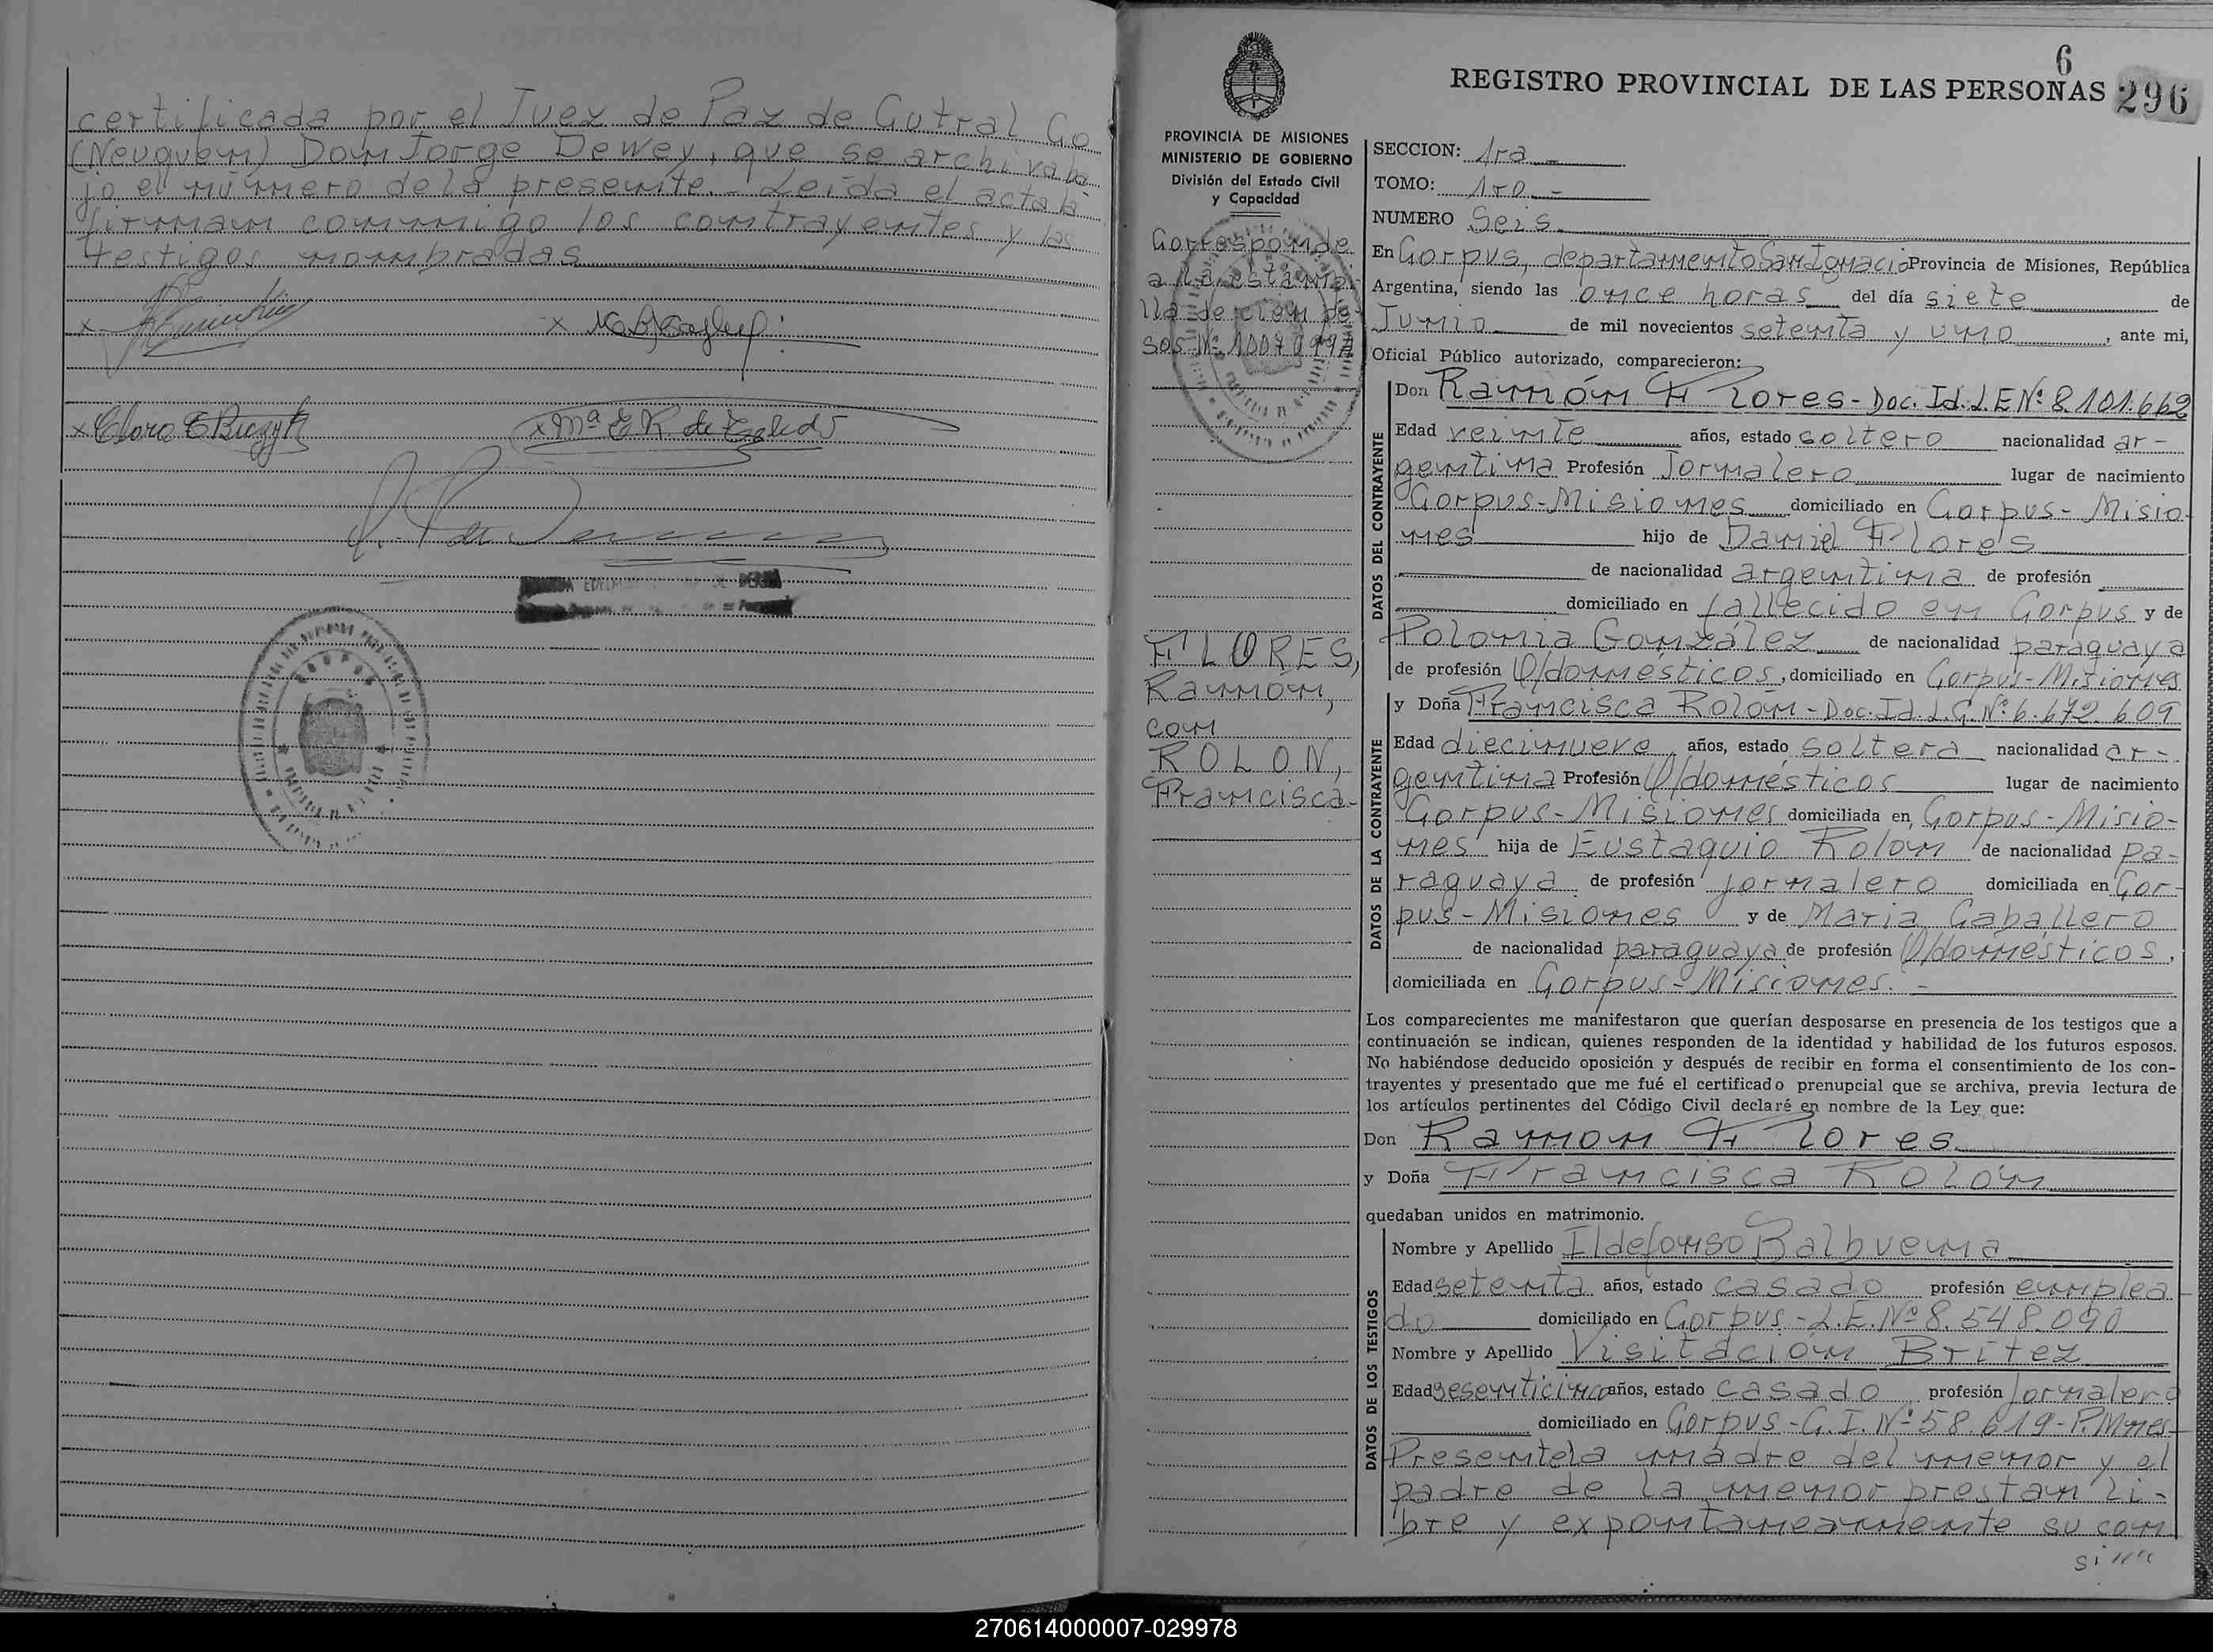 certificada por el Juez de Paz de Cutral Co
(Neuquén) Don Jorge Dewey, que se archiva ba
jo el número de la presente.- Leída el acta la
firman conmigo los contrayentes y los
testigos nombrados
x
x
x Clara E Biczyk
x Mª E R de
6
REGISTRO PROVINCIAL DE LAS PERSONAS 296
PROVINCIA DE MISIONES
MINISTERIO DE GOBIERNO
División del Estado Civil
y Capacidad
Corresponde
a la estampi
lla de cien pe
sos Nº
FLORES,
Ramón,
con
ROLON,
Francisca-
SECCION: 1ra.-
TOMO: 1ro.-
NUMERO Seis.
En Corpus, departamento San Ignacio Provincia de Misiones, República
Argentina, siendo las once horas del día siete de
Junio de mil novecientos setenta y uno, ante mi,
Oficial Público autorizado, comparecieron:
DATOS DEL CONTRAYENTE
Don Ramón Flores - Doc. Id. L.E Nº 8.101.662
Edad veinte años, estado soltero nacionalidad ar-
gentina Profesión Jornalero lugar de nacimiento
Corpus-Misiones domiciliado en Corpus-Misio-
nes hijo de Daniel Flores
de nacionalidad argentina de profesión
domiciliado en fallecido en Corpus y de
Polonia González de nacionalidad paraguaya
de profesión Q/domésticos, domiciliado en Corpus-Misiones
DATOS DE LA CONTRAYENTE
y Doña Francisca Rolón - Doc. Id. L.C. Nº 6.672.609
Edad diecinueve, años, estado soltera nacionalidad ar-
gentina Profesión Q/domésticos lugar de nacimiento
Corpus-Misiones domiciliada en Corpus-Misio-
nes hija de Eustaquio Rolon de nacionalidad pa-
raguaya de profesión jornalero domiciliada en Cor-
pus-Misiones y de Maria Caballero
de nacionalidad paraguaya de profesión Q/domésticos,
domiciliada en Corpus-Misiones.-
Los comparecientes me manifestaron que querían desposarse en presencia de los testigos que a
continuación se indican, quienes responden de la identidad y habilidad de los futuros esposos.
No habiéndose deducido oposición y después de recibir en forma el consentimiento de los con-
trayentes y presentado que me fué el certificado prenupcial que se archiva, previa lectura de
los artículos pertinentes del Código Civil declaré en nombre de la Ley que:
Don Ramon Flores
y Doña Francisca Rolón
quedaban unidos en matrimonio.
DATOS DE LOS TESTIGOS
Nombre y Apellido Ildefonso Balbuena
Edad setenta años, estado casado profesión emplea
do domiciliado en Corpus-L.E.Nº 8.548.090
Nombre y Apellido Visitación Britez
Edad sesenticinco años, estado casado profesión jornalero
domiciliado en Corpus-C.I.Nº 58.619-P.Mnes-
Presente la madre del menor y el
padre de la menor prestan li-
bre y expontaneamente su con
270614000007-029978